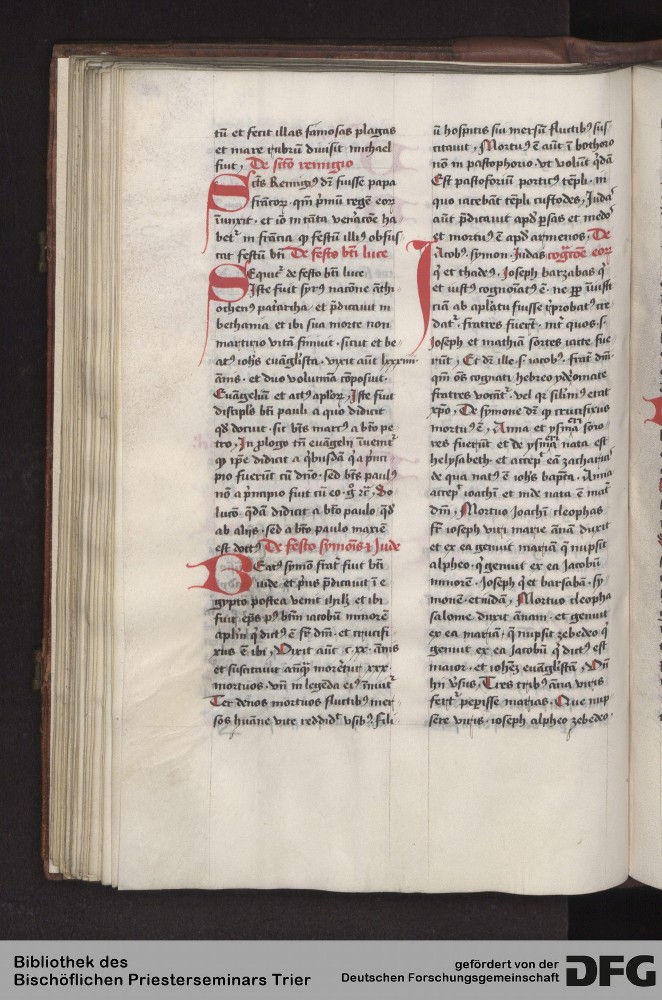 tū et fecit illas famosas plagas
et mare rubrū diuisit michael
fuit, De scō remigio
Sc̄s Remigiꝰ dr̄ fuisse papa
francoꝝ · qm̄ pͥmū regē eoꝝ
iūnxit · et iō in tāta veneracōe ha
betʳ in frācia ꝙ festū illiꝰ obfus
cat festū bt̄i De festo bt̄i luce
Sequitʳ de festo bt̄i luce ·
Iste fuit syrꝰ nacōne ānthi
ochenꝰ patͥarcha · et p̄dicauit in
bethania et ibi sua morte non
martirio vitā finiuit · sicut et be
atꝰ ioh̄s euāgl̓ista · vixit aūt lxxxiiii
ānis · et duo volumina cōposuit ·
Euāgeliū et actꝰ apl̓oꝝ, Iste fuit
disciplꝰ bt̄i pauli a quo didicit
qd̄ docuit · sic bt̄s marcꝰ a bt̄o pe
tro, In plogo tn̄ euāgelij īuenitʳ
ꝙ ip̄e didicit a qͥbusdā qͥ a pͥnci
pio fuerūt cū dn̄o · sed bt̄s paulꝰ
nō a pͥncipio fuit cū eo · gͦ rc̄, So
lucō · quedā didicit a bt̄o paulo · qd̄
ab alijs · sed a bt̄o paulo maxīe
est doctꝰ De festo symōis ⁊ Jude
Beatꝰ symō fratʳ fuit bt̄i
iude · et pͥmꝰ p̄dicauit ī e
gypto postea venit ihrl̄m et ibi
fuit ep̄s pꝰ btm̄ iacobū minorē
apl̓m qͥ dictꝰ ē fr̄ dn̄i · et crucifi
xus ē ibi, Vixit aūt · c · xx · ānis
et suscitauit anqͣꝫ morētur xxx ·
mortuos · vn̄ in legēda eiꝰ īuenitʳ
Ter denos mortuos fluctibꝰ mer
sos hūane vite reddidͭ vsibꝰ · fili
ū hospitis sui mersū fluctibꝰ sus
citauit, Mortuꝰ ē aūt ī bosforo
nō in pastophorio · vt volūt qͥdā
Est pastoforiū porticꝰ tēpli · in
quo iacebāt tēpli custodes, Judas
aūt p̄dicauit apd̄ persas et medos
et mortuꝰ ē apd̄ armenos, De
Jacobꝰ · symon · Judas cogͣcōe eoꝝ
qͥ et thadeꝰ, Joseph barzabas qͥ
et iustꝰ cognoīatꝰ ē · ne ꝓp̄ iniusti
ciā ab apl̓atu fuisse rp̄robatꝰ cre
datʳ · fratres fuerūt · intʳ quos · s ·
Joseph et mathiā sortes iacte fue
rūt, Et dr̄ ille · s · iacobꝰ · fratʳ dn̄i ·
qm̄ oēs cognati hebreo ydeomate
fratres vocātʳ · vel qͥ silīmꝰ erat
xp̄o, De symone dr̄ ꝙ crucifixus
mortuꝰ ē, Anna et ysmaria soro
res fuerūt et de ysmaria nata est
helysabeth · et accepͭ eā zacharias
de qua natꝰ ē ioh̄s bapt̄a · Anna
accepͭ ioachī et inde nata ē matʳ
dn̄i, Mortuo Joachī cleophas
fr̄ ioseph viri marie ānā duxit
et ex ea genuit mariā q̄ nupsit
alpheo · qͥ genuit ex ea Jacobū
minorē · Joseph qͥ et barsabā · sy
monē · et iudā, Mortuo cleopha
salome duxit ānam · et genuit
ex ea mariā, q̄ nupsit zebedeo qͥ
genuit ex ea Jacobū qͥ dictꝰ est
maior · et ioh̄ez euāgl̓istā, Vn̄
hij vꝰsus, Tres tribꝰ āna viris
fertʳ peperisse marias · Que nup
sere viris · ioseph alpheo zebedeo ·
Bibliothek des
Bischöflichen Priesterseminars Trier
gefördert von der
Deutschen Forschungsgemeinschaft
DFG